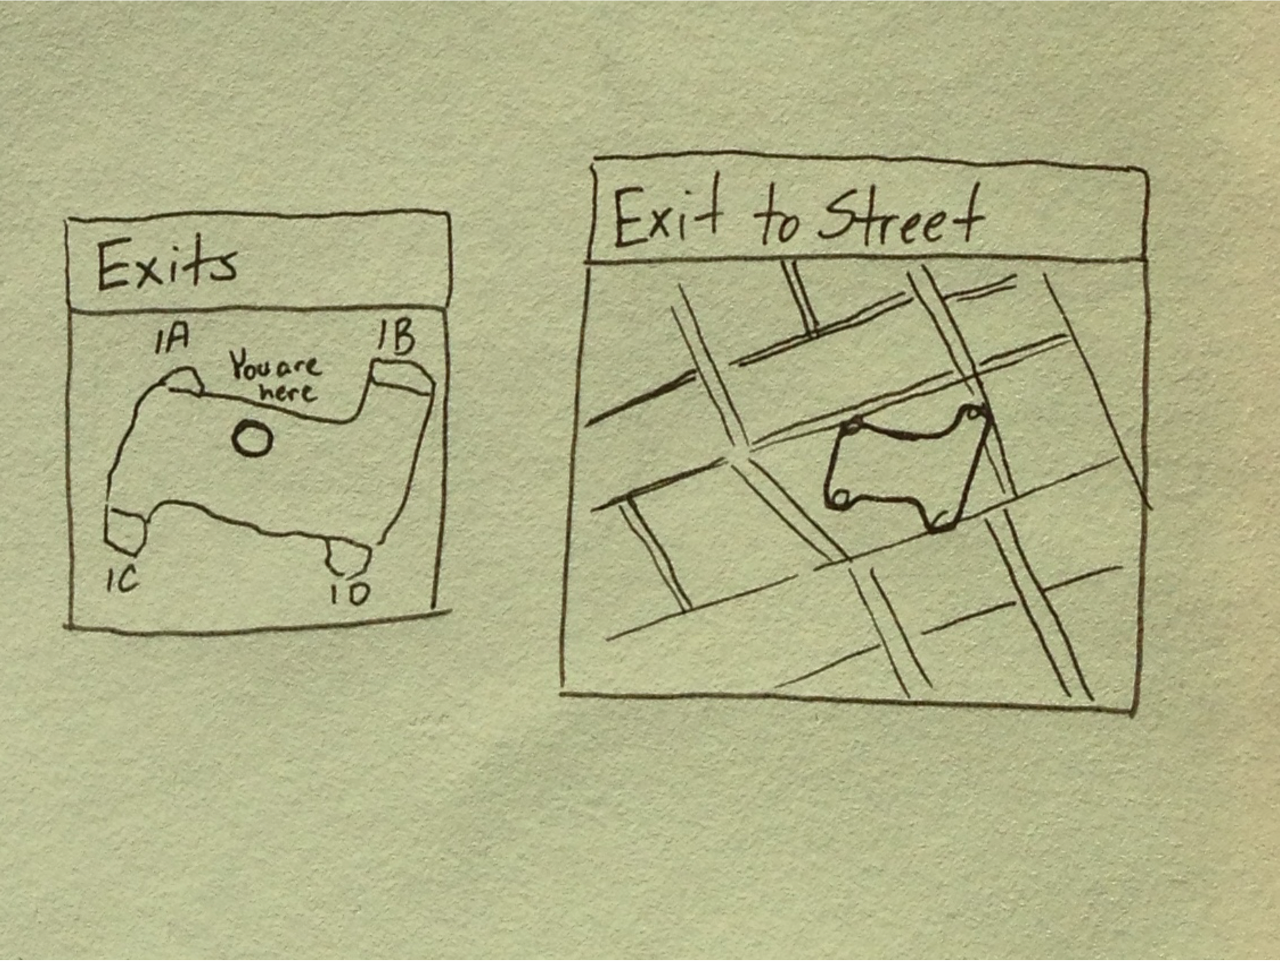 Exits
1A
1B
You are
here
1C
1D
Exit to Street